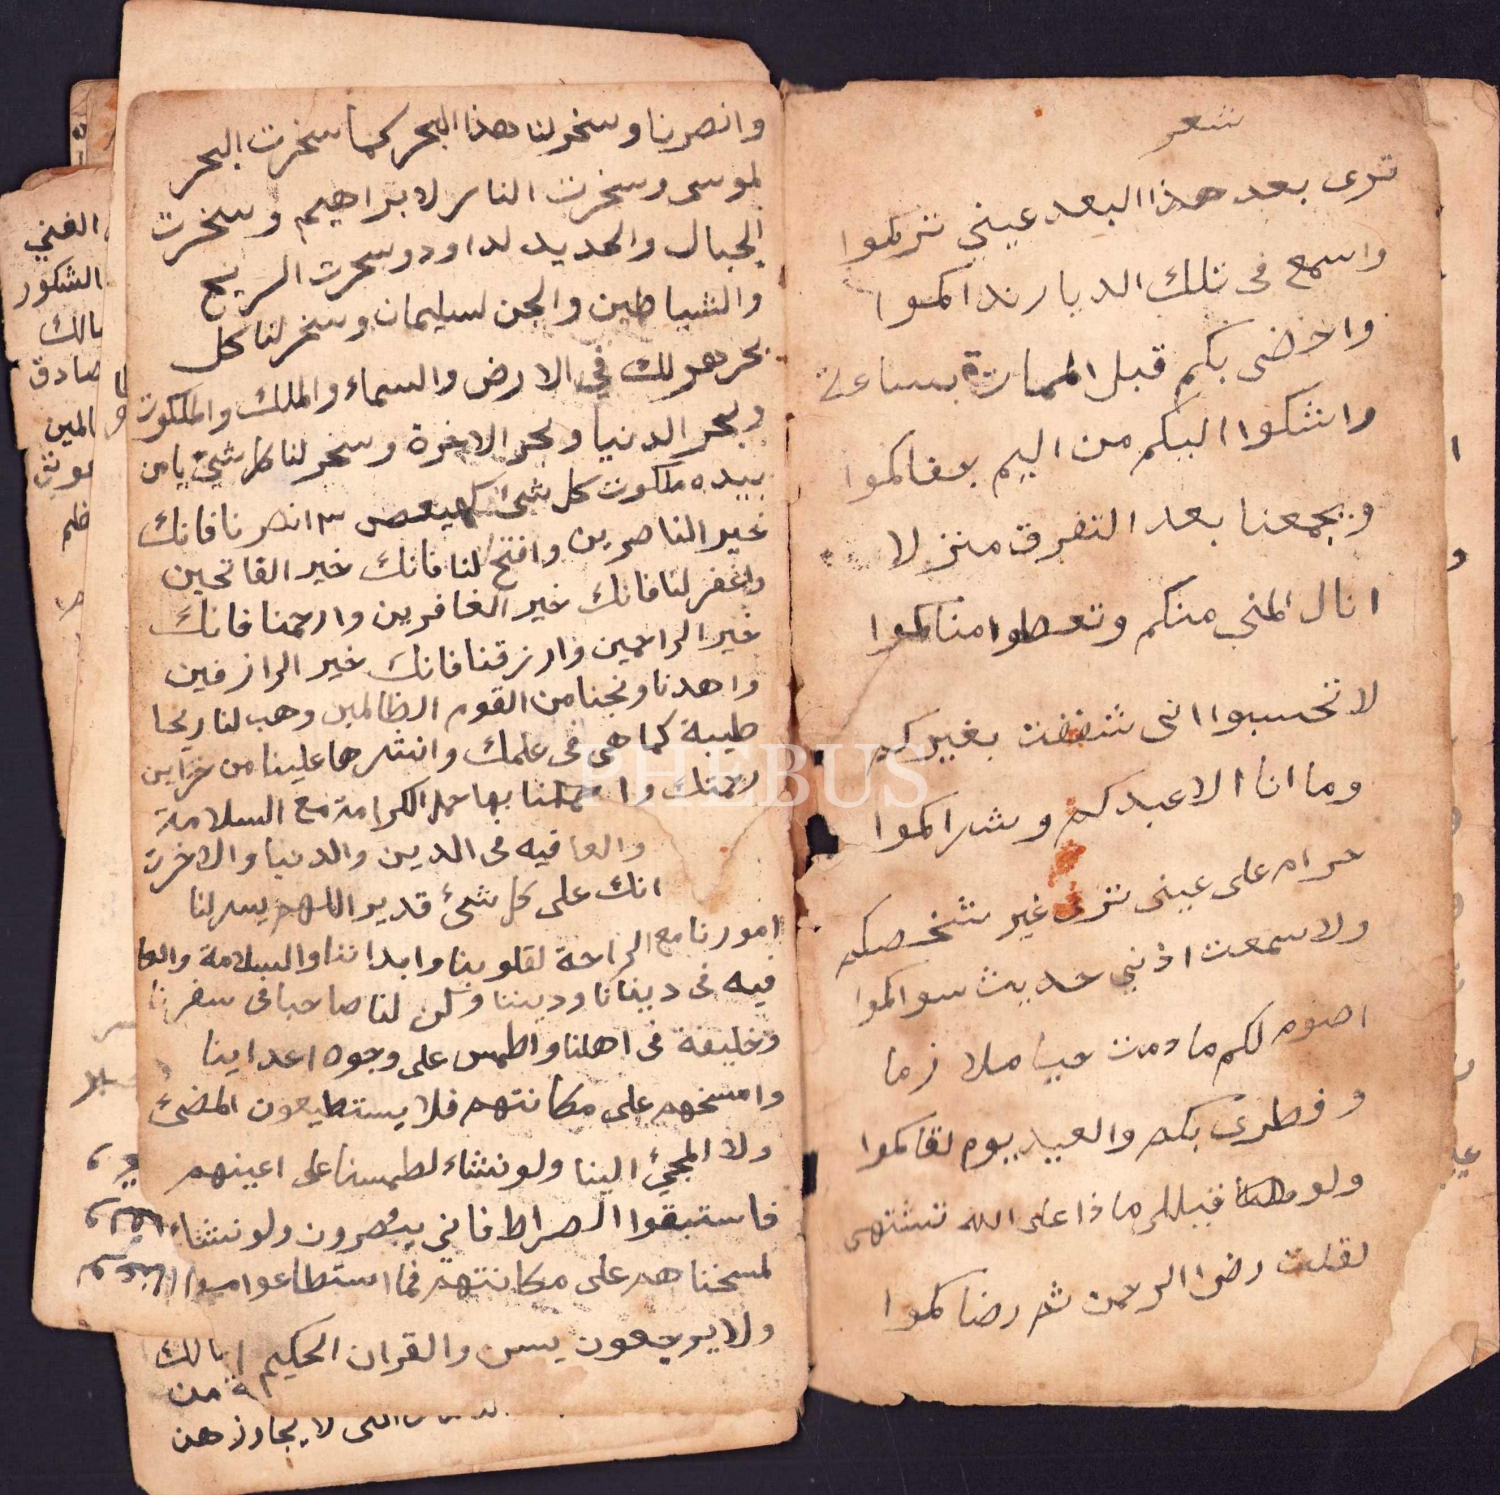 شعر
ترى بعد هذا البعد عيني تركموا
واسمع فى تلك الديار نداكموا
واحضى بكم قبل الممات بساعة
واشكوا اليكم من اليم جفاكموا
ويجمعنا بعد التفرق منزلا
انال المنى منكم وتعطوا مناكموا
لا تحسبوا انى شغفت بغيركم
وما انا الا عبدكم وشراكموا
حرام على عينى ترى غير شخصكم
ولا سمعت اذني حديث سواكموا
اصوم لكم ما دمت حيا ملازما
وفطرى بكم والعيد يوم لقاكموا
ولو قيل لى ماذا على الله تشتهى
لقلت رضا الرحمن ثم رضاكموا
وانصرنا وسخر لنا هذا البحر كما سخرت البحر
لموسى وسخرت النار لابراهيم وسخرت
الجبال والحديد لداود وسخرت الريح
والشياطين والجن لسليمان وسخر لنا كل
بحر هو لك في الارض والسماء والملك والملكوت
وبحر الدنيا وبحر الاخرة وسخر لنا كل شئ يا من
بيده ملكوت كل شئ كهيعص ٣ انصرنا فانك
خير الناصرين وافتح لنا فانك خير الفاتحين
واغفر لنا فانك خير الغافرين وارحمنا فانك
خير الراحمين وارزقنا فانك خير الرازقين
واهدنا ونجنا من القوم الظالمين وهب لنا ريحا
طيبة كما هى فى علمك وانشرها علينا من خزاين
رحمتك واحملنا بها حمل الكرامة مع السلامة
والعافيه فى الدين والدنيا والاخرت
انك على كل شئ قدير اللهم يسر لنا
امورنا مع الراحة لقلوبنا وابداننا والسلامة والعا
فيه فى دنيانا وديننا وكن لنا صاحبا فى سفرنا
وخليفة فى اهلنا واطمس على وجوه اعداينا
وامسخهم على مكانتهم فلا يستطيعون المضئ
ولا المجئ الينا ولو نشاء لطمسنا على اعينهم
فاستبقوا الصراط فاني يبصرون ولو نشاء
لمسخناهم على مكانتهم فما استطاعوا
ولا يرجعون يسن والقران الحكيم
من
التى لا يجاوزهن
الغني
الشكور
مالك
صادق